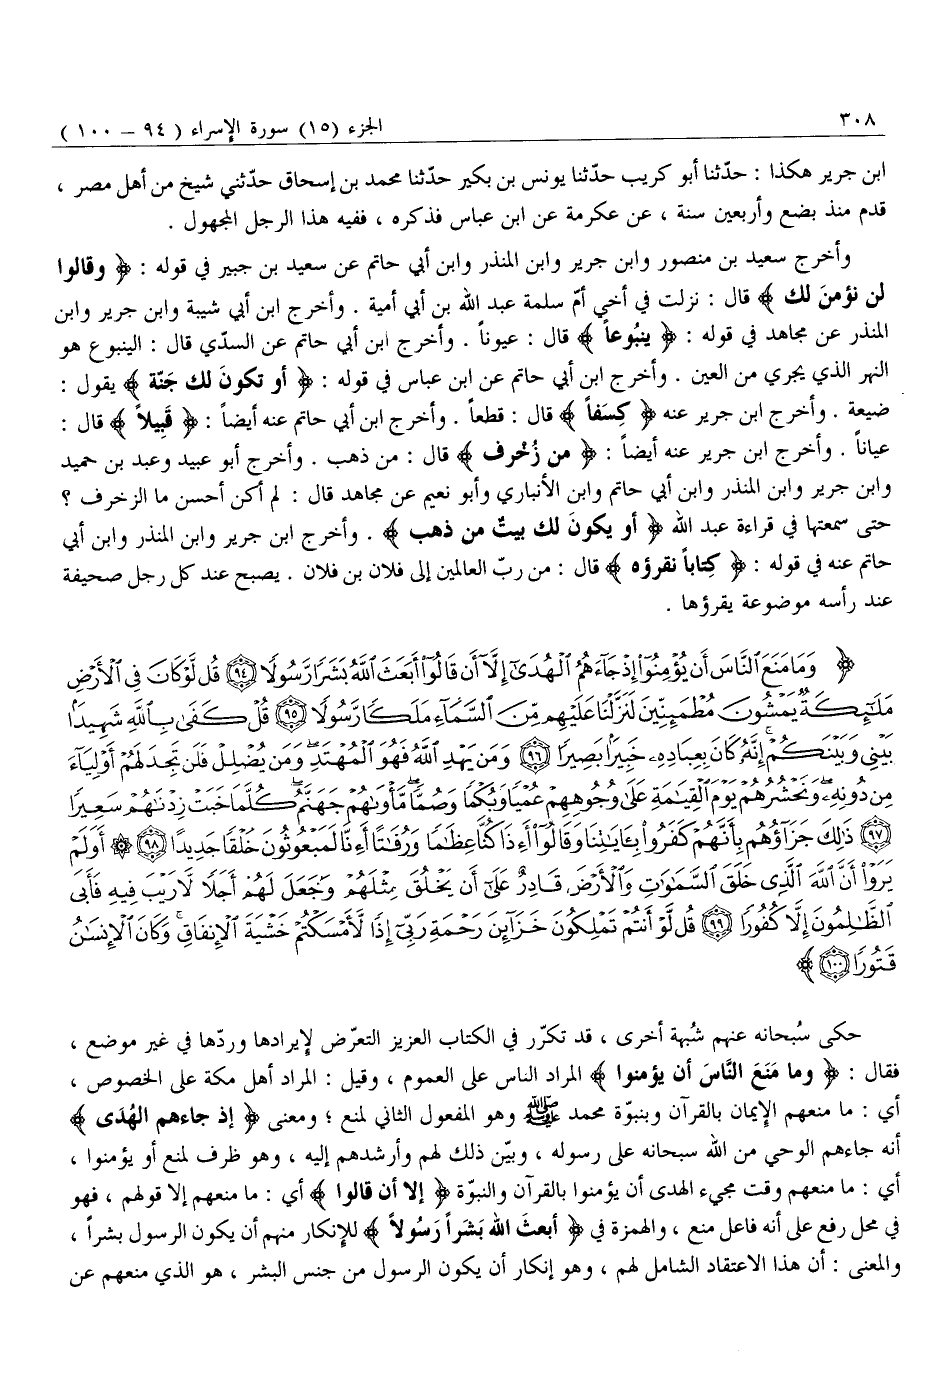 ٣٠٨
الجزء (١٥) سورة الإسراء ( ٩٤ – ١٠٠ )
ابن جرير هكذا : حدّثنا أبو كريب حدّثنا يونس بن بكير حدّثنا محمد بن إسحاق حدّثني شيخ من أهل مصر ،
قدم منذ بضع وأربعين سنة ، عن عكرمة عن ابن عباس فذكره ، ففيه هذا الرجل المجهول .
وأخرج سعيد بن منصور وابن جرير وابن المنذر وابن أبي حاتم عن سعيد بن جبير في قوله : ﴿ وقالوا
لن نؤمنَ لك ﴾ قال : نزلت في أخي أمّ سلمة عبد الله بن أبي أمية . وأخرج ابن أبي شيبة وابن جرير وابن
المنذر عن مجاهد في قوله : ﴿ ينبُوعاً ﴾ قال : عيوناً . وأخرج ابن أبي حاتم عن السدّي قال : الينبوع هو
النهر الذي يجري من العين . وأخرج ابن أبي حاتم عن ابن عباس في قوله : ﴿ أو تكونَ لك جَنّة ﴾ يقول :
ضيعة . وأخرج ابن جرير عنه ﴿ كِسَفاً ﴾ قال : قطعاً . وأخرج ابن أبي حاتم عنه أيضاً : ﴿ قَبِيلاً ﴾ قال :
عياناً . وأخرج ابن جرير عنه أيضاً : ﴿ من زُخْرف ﴾ قال : من ذهب . وأخرج أبو عبيد وعبد بن حميد
وابن جرير وابن المنذر وابن أبي حاتم وابن الأنباري وأبو نعيم عن مجاهد قال : لم أكن أحسن ما الزخرف ؟
حتى سمعتها في قراءة عبد الله ﴿ أو يكونَ لك بيتٌ من ذهب ﴾ . وأخرج ابن جرير وابن المنذر وابن أبي
حاتم عنه في قوله : ﴿ كِتاباً نقرؤه ﴾ قال : من ربّ العالمين إلى فلان بن فلان . يصبح عند كل رجل صحيفة
عند رأسه موضوعة يقرؤها .
﴿ وَمَا مَنَعَ ٱلنَّاسَ أَن يُؤْمِنُوٓا۟ إِذْ جَآءَهُمُ ٱلْهُدَىٰٓ إِلَّآ أَن قَالُوٓا۟ أَبَعَثَ ٱللَّهُ بَشَرًا رَّسُولًا ٩٤ قُل لَّوْ كَانَ فِى ٱلْأَرْضِ
مَلَـٰٓئِكَةٌ يَمْشُونَ مُطْمَئِنِّينَ لَنَزَّلْنَا عَلَيْهِم مِّنَ ٱلسَّمَآءِ مَلَكًا رَّسُولًا ٩٥ قُلْ كَفَىٰ بِٱللَّهِ شَهِيدًۢا
بَيْنِى وَبَيْنَكُمْ ۚ إِنَّهُۥ كَانَ بِعِبَادِهِۦ خَبِيرًۢا بَصِيرًا ٩٦ وَمَن يَهْدِ ٱللَّهُ فَهُوَ ٱلْمُهْتَدِ ۖ وَمَن يُضْلِلْ فَلَن تَجِدَ لَهُمْ أَوْلِيَآءَ
مِن دُونِهِۦ ۖ وَنَحْشُرُهُمْ يَوْمَ ٱلْقِيَـٰمَةِ عَلَىٰ وُجُوهِهِمْ عُمْيًا وَبُكْمًا وَصُمًّا ۖ مَّأْوَىٰهُمْ جَهَنَّمُ ۖ كُلَّمَا خَبَتْ زِدْنَـٰهُمْ سَعِيرًا
٩٧ ذَٰلِكَ جَزَآؤُهُم بِأَنَّهُمْ كَفَرُوا۟ بِـَٔايَـٰتِنَا وَقَالُوٓا۟ أَءِذَا كُنَّا عِظَـٰمًا وَرُفَـٰتًا أَءِنَّا لَمَبْعُوثُونَ خَلْقًا جَدِيدًا ٩٨ ۞ أَوَلَمْ
يَرَوْا۟ أَنَّ ٱللَّهَ ٱلَّذِى خَلَقَ ٱلسَّمَـٰوَٰتِ وَٱلْأَرْضَ قَادِرٌ عَلَىٰٓ أَن يَخْلُقَ مِثْلَهُمْ وَجَعَلَ لَهُمْ أَجَلًا لَّا رَيْبَ فِيهِ فَأَبَى
ٱلظَّـٰلِمُونَ إِلَّا كُفُورًا ٩٩ قُل لَّوْ أَنتُمْ تَمْلِكُونَ خَزَآئِنَ رَحْمَةِ رَبِّىٓ إِذًا لَّأَمْسَكْتُمْ خَشْيَةَ ٱلْإِنفَاقِ ۚ وَكَانَ ٱلْإِنسَـٰنُ
قَتُورًا ١٠٠ ﴾
حكى سُبحانه عنهم شُبهة أخرى ، قد تكرّر في الكتاب العزيز التعرّض لإيرادها وردّها في غير موضع ،
فقال : ﴿ وما مَنَعَ النَّاسَ أن يؤمنوا ﴾ المراد الناس على العموم ، وقيل : المراد أهل مكة على الخصوص ،
أي : ما منعهم الإيمان بالقرآن وبنبوّة محمد ﷺ وهو المفعول الثاني لمنع ؛ ومعنى ﴿ إذ جاءهم الهُدَى ﴾
أنه جاءهم الوحي من الله سبحانه على رسوله ، وبيّن ذلك لهم وأرشدهم إليه ، وهو ظرف لمنع أو يؤمنوا ،
أي : ما منعهم وقت مجيء الهدى أن يؤمنوا بالقرآن والنبوّة ﴿ إلا أن قالوا ﴾ أي : ما منعهم إلا قولهم ، فهو
في محل رفع على أنه فاعل منع ، والهمزة في ﴿ أبعثَ الله بَشَراً رَسُولاً ﴾ للإنكار منهم أن يكون الرسول بشراً ،
والمعنى : أن هذا الاعتقاد الشامل لهم ، وهو إنكار أن يكون الرسول من جنس البشر ، هو الذي منعهم عن